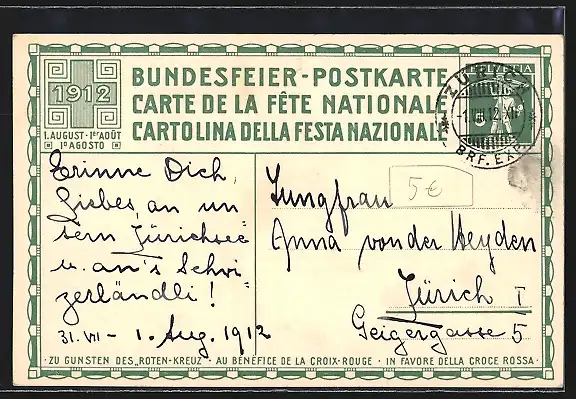 BUNDESFEIER-POSTKARTE
CARTE DE LA FÊTE NATIONALE
CARTOLINA DELLA FESTA NAZIONALE
1912
1. AUGUST · 1ER AOÛT
1º AGOSTO
HELVETIA
ZÜRICH
-1.VIII.12.XII-
BRF. EXP.
Erinne Dich,
Liebes, an un
sern Zürichsee
u. an's Schwi
zerländli!
31. VII - 1. Aug. 1912
5 €
Jungfrau
Anna von der Heyden
Zürich I
Geigergasse 5
· ZU GUNSTEN DES „ROTEN-KREUZ" · AU BÉNÉFICE DE LA CROIX-ROUGE · IN FAVORE DELLA CROCE ROSSA ·